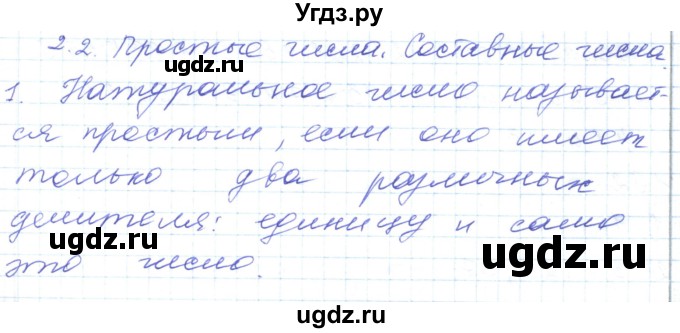 Угдз.ру
2.2. Простые числа. Составные числа.
gdz.ru
1. Натуральное число называет-
gdz.ru
ся простым, если оно имеет
только два различных
делителя: единицу и само
gdz.ru
gdz.ru
это число.
gdz.ru